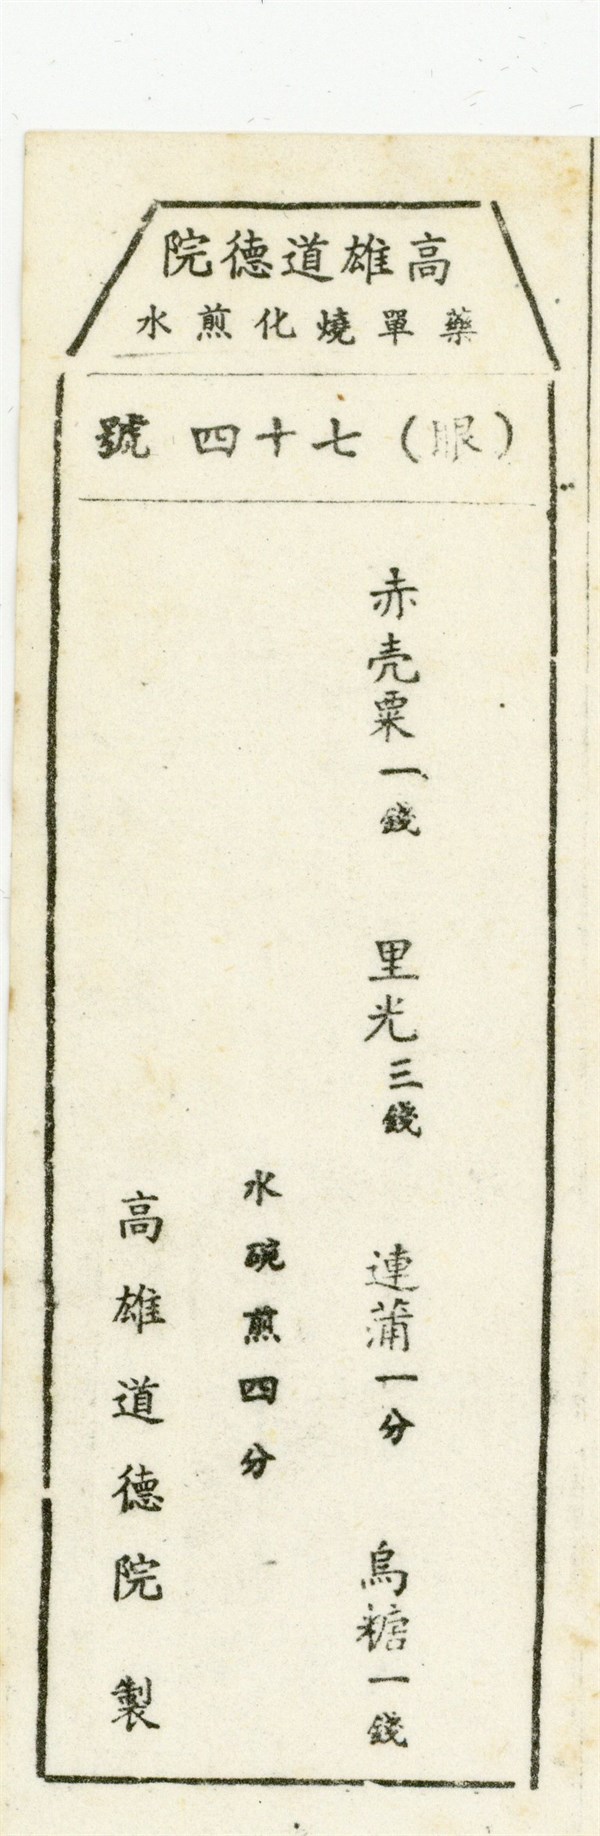 高雄道德院
藥單燒化煎水
(眼)七十四號
赤壳粟一錢 里光三錢 連蒲一分 烏糖一錢
水碗煎四分
高雄道德院製